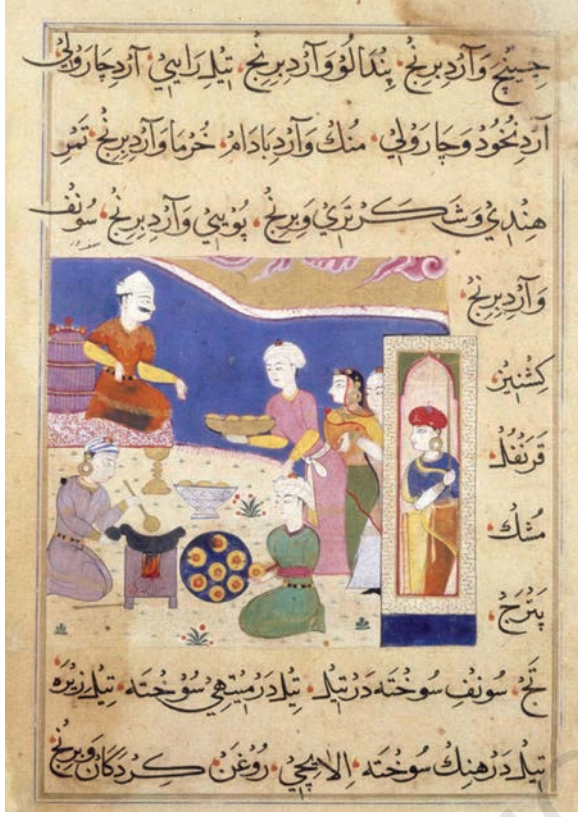 وآرد برنج پندالو وآرد برنج تیل رایی آرد چارولی
آرد نخود و چارولی منک وآرد بادام خرما وآرد برنج تمر
هندی و شکر تری و برنج پویی وآرد برنج سونف
وآرد برنج
کشنیز
قرنفل
مشک
پترج
تج سونف سوخته در تیل تیل در میتهی سوخته تیل زیره
تیل در هنک سوخته الایچی روغن کردکان و برنج